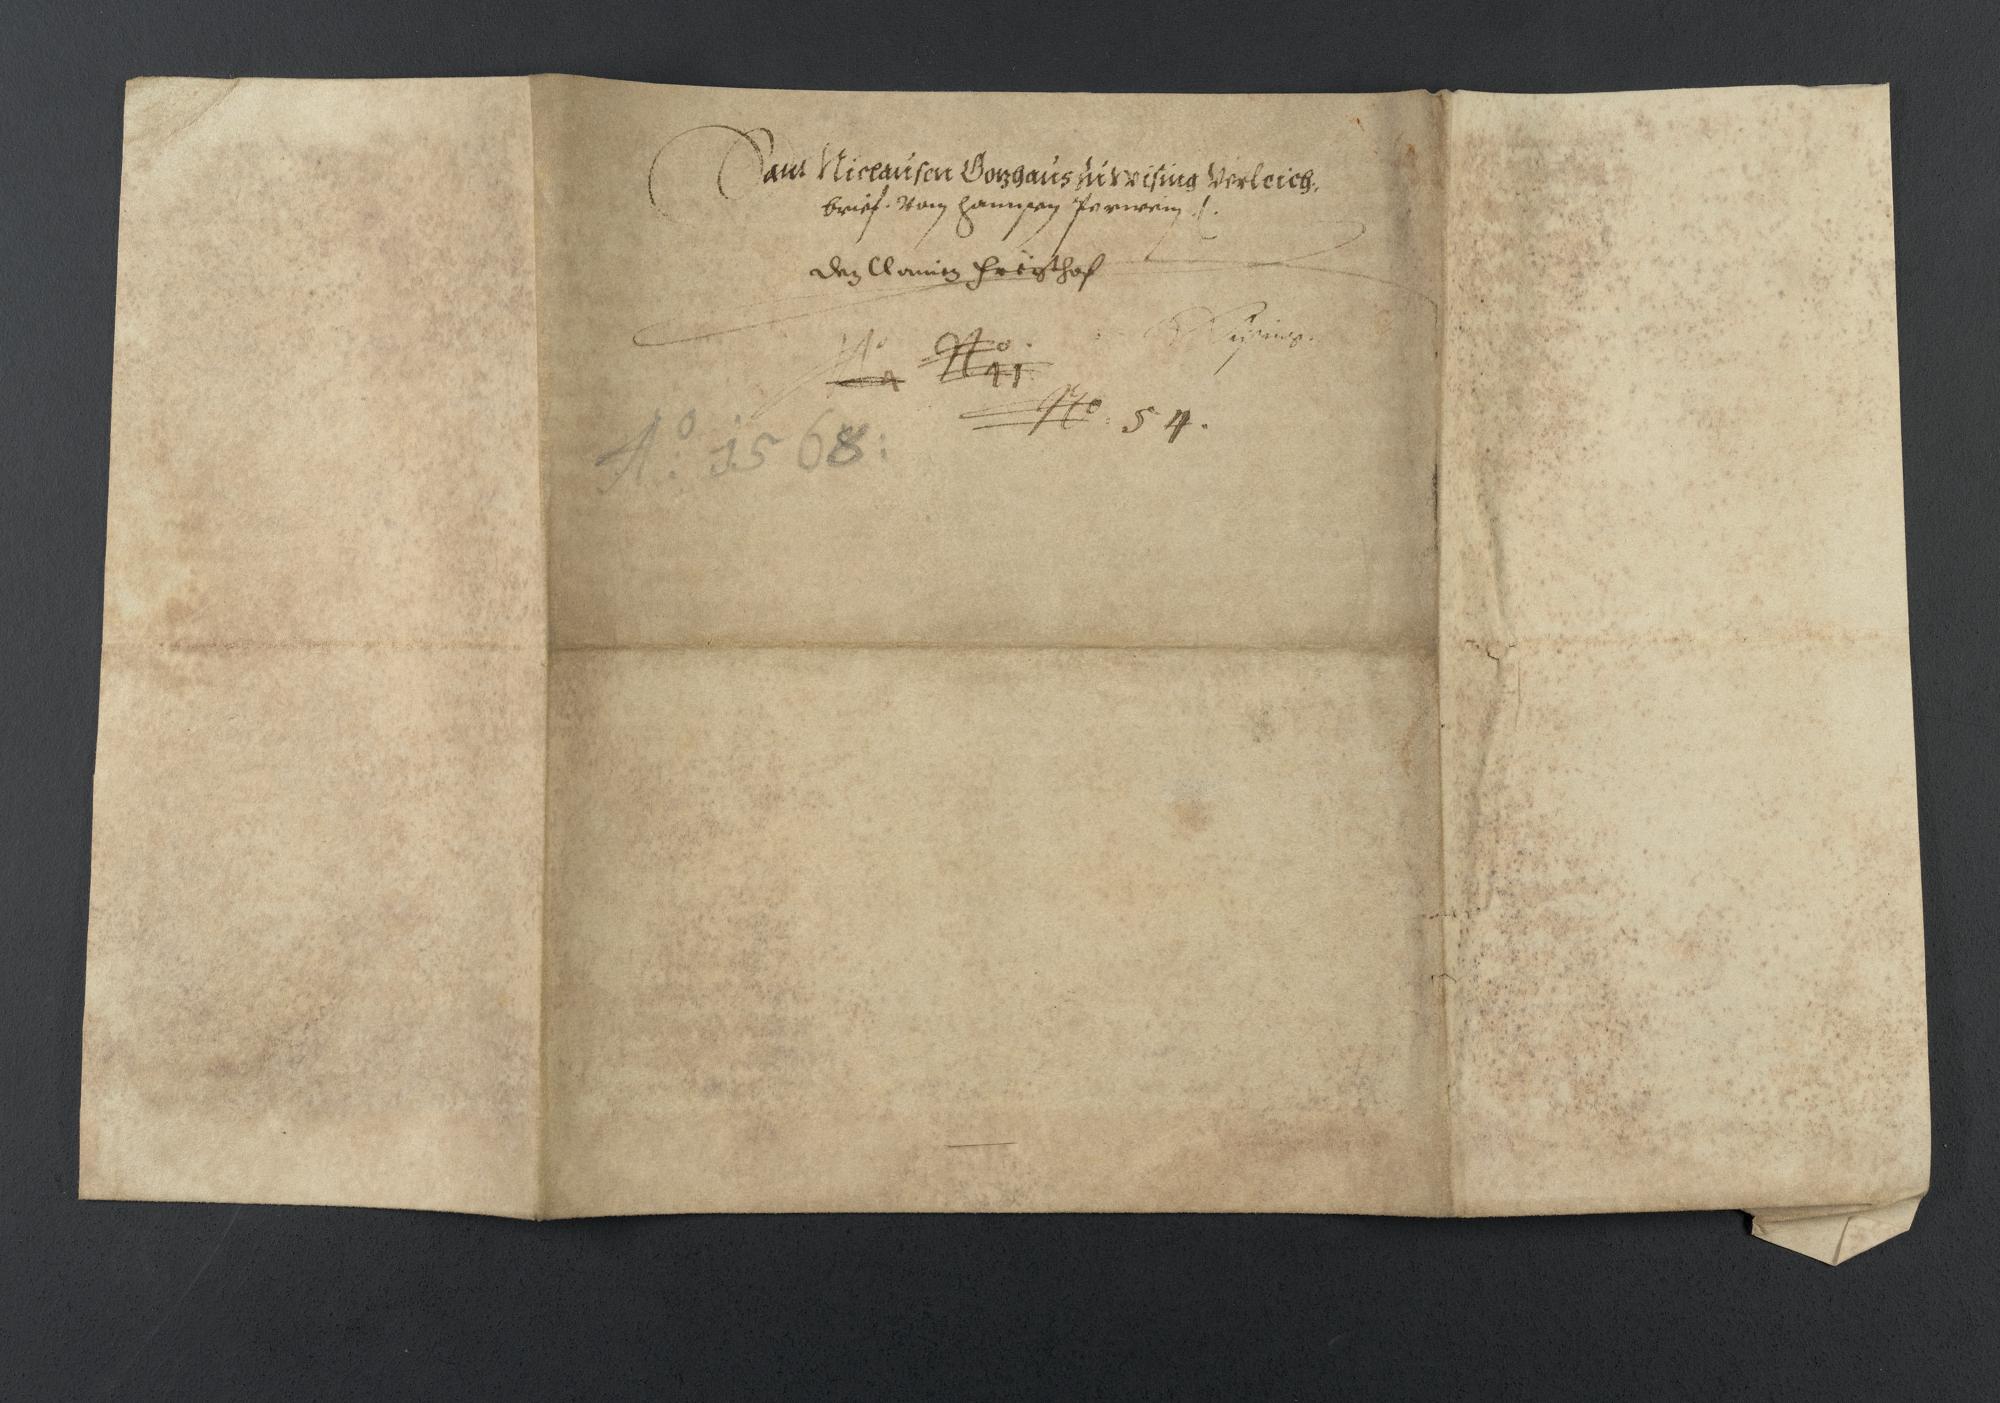 Sant Niclausen Gotzhaus zu Wising Verleich,
brief. Von Hannsen Perwein
den Clainen Freithof
No No.
4 41
No. 54.
Ao: 1568: